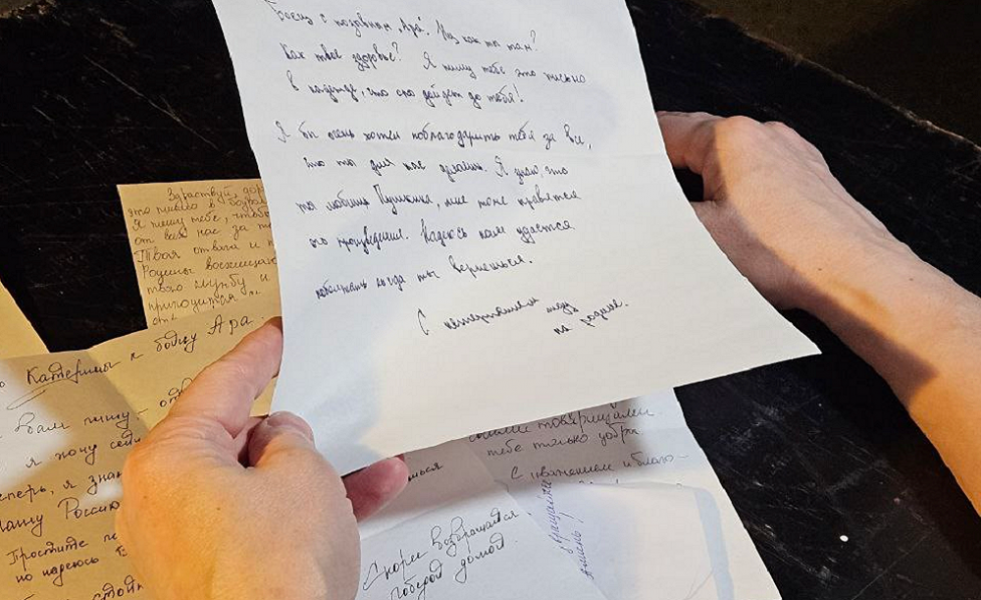 Бойцу с позывным „Ара“. Ну, как ты там?
Как твоё здоровье? Я пишу тебе это письмо
в надежде, что оно дойдет до тебя!
Я бы очень хотел поблагодарить тебя за все,
что ты для нас делаешь. Я знаю, что
ты любишь Пушкина, мне тоже нравятся
его произведения. Надеюсь нам удастся
когда ты вернешься.
С нетерпением жду
на родине.
Здравствуй, дор
это письмо в
Я пишу тебе, чтобы
от всех нас за
Твоя отвага и
Родины восхищаю
твою службу и
Катерины к бойцу Ара.
Вам пишу -
я хочу
теперь, я знаю
нашу Россию
Простите
но надеюсь
товарищами.
тебе только добра
С уважением и благо-
Скорее возвращайся
победой домой